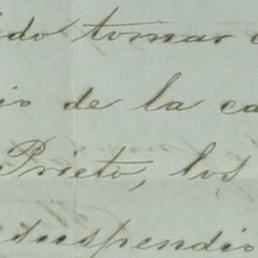 ido tomar
io de la ca
Prieto, los
suspendio